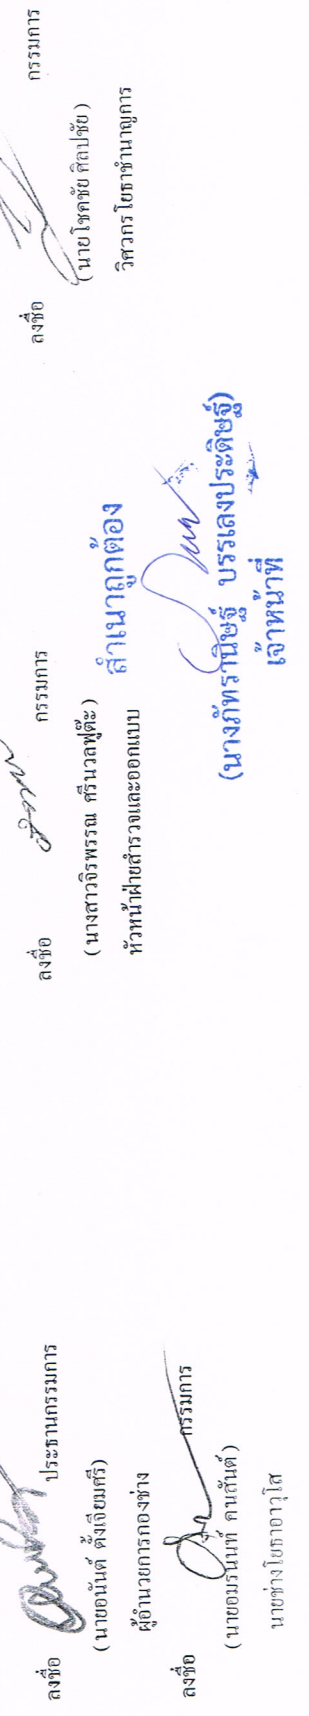 ลงชื่อ ประธานกรรมการ
( นายอนันต์ ตั้งเจียมศรี)
ผู้อำนวยการกองช่าง
ลงชื่อ กรรมการ
( นายอมรนันท์ คนสันต์ )
นายช่างโยธาอาวุโส
ลงชื่อ กรรมการ
( นางสาวจิรพรรณ ศรีนวลฟูต๊ะ )
หัวหน้าฝ่ายสำรวจและออกแบบ
สำเนาถูกต้อง
(นางภัทรานิษฐ์ บรรเลงประดิษฐ์)
เจ้าหน้าที่
ลงชื่อ กรรมการ
( นายโชคชัย ศิลปชัย )
วิศวกรโยธาชำนาญการ